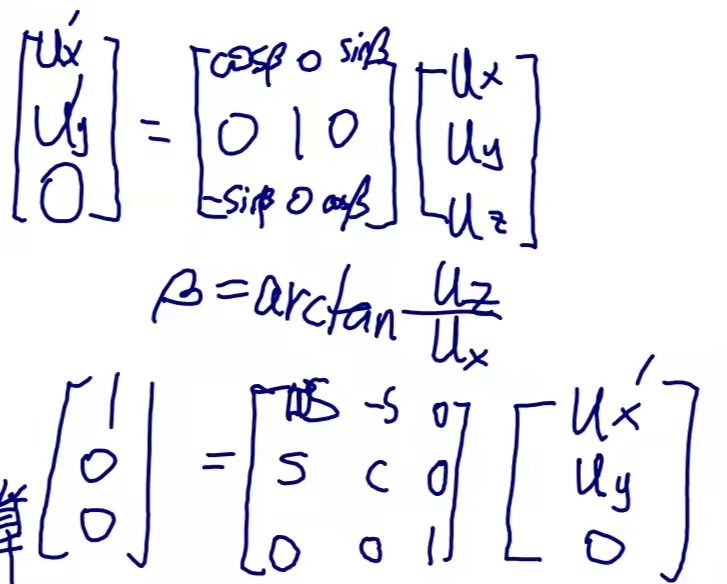 [ux' uy' 0] = [cosβ 0 sinβ; 0 1 0; -sinβ 0 cosβ] [ux uy uz]
β = arctan uz/ux
[1 0 0] = [-s 0; s c 0; 0 0 1] [ux' uy 0]